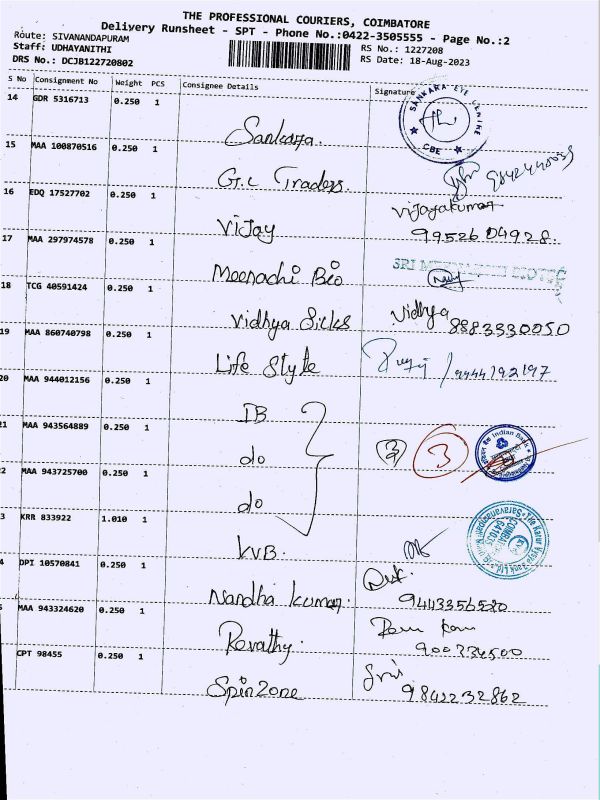 THE PROFESSIONAL COURIERS, COIMBATORE
Delivery Runsheet - SPT - Phone No.:0422-3505555 - Page No.:2
Route: SIVANANDAPURAM
Staff: UDHAYANITHI
RS No.: 1227208
DRS No.: DCJB122720802
RS Date: 18-Aug-2023
S No Consignment No Weight PCS Consignee Details Signature
14 GDR 5316713 0.250 1 Sankara
SANKARA EYE CENTRE CBE
15 MAA 100870516 0.250 1 G.C Traders
16 EDQ 17527702 0.250 1 Vijay Vijayakumar
99526 04928.
17 MAA 297974578 0.250 1 Meenachi Bio
18 TCG 40591424 0.250 1 Vidhya Silks Vidhya 8883330050
19 MAA 860740798 0.250 1 Life Style 9444192197
20 MAA 944012156 0.250 1 IB
21 MAA 943564889 0.250 1 do 3 3 Indian Bank
22 MAA 943725700 0.250 1 do
3 KRR 833922 1.010 1 KVB.
4 DPI 10570841 0.250 1 Nandha Kumar 9443356520
5 MAA 943324620 0.250 1 Revathy 900334500
CPT 98455 0.250 1 Spinzone 9842232862